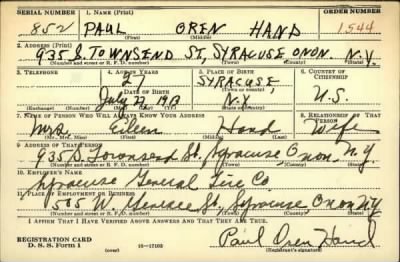 SERIAL NUMBER 1. NAME (Print) ORDER NUMBER
852 PAUL OREN HAND 1544
(First) (Middle) (Last)
2. ADDRESS (Print)
935 S. TOWNSEND ST, SYRACUSE ONON. N.Y.
(Number and street or R. F. D. number) (Town) (County) (State)
3. TELEPHONE 4. AGE IN YEARS 5. PLACE OF BIRTH 6. COUNTRY OF CITIZENSHIP
27 SYRACUSE,
DATE OF BIRTH (Town or county)
July 23, 1913 N.Y. U.S.
(Exchange) (Number) (Mo.) (Day) (Yr.) (State or country)
7. NAME OF PERSON WHO WILL ALWAYS KNOW YOUR ADDRESS 8. RELATIONSHIP OF THAT PERSON
Mrs Eileen Hand Wife
(Mr., Mrs., Miss) (First) (Middle) (Last)
9. ADDRESS OF THAT PERSON
935 S. Townsend St. Syracuse Onon. N.Y.
(Number and street or R. F. D. number) (Town) (County) (State)
10. EMPLOYER'S NAME
Syracuse General Tire Co.
11. PLACE OF EMPLOYMENT OR BUSINESS
505 W. Genesee St. Syracuse Onon N.Y.
(Number and street or R. F. D. number) (Town) (County) (State)
I AFFIRM THAT I HAVE VERIFIED ABOVE ANSWERS AND THAT THEY ARE TRUE.
REGISTRATION CARD
D. S. S. Form 1 (over) 16-17105
Paul Oren Hand
(Registrant's signature)